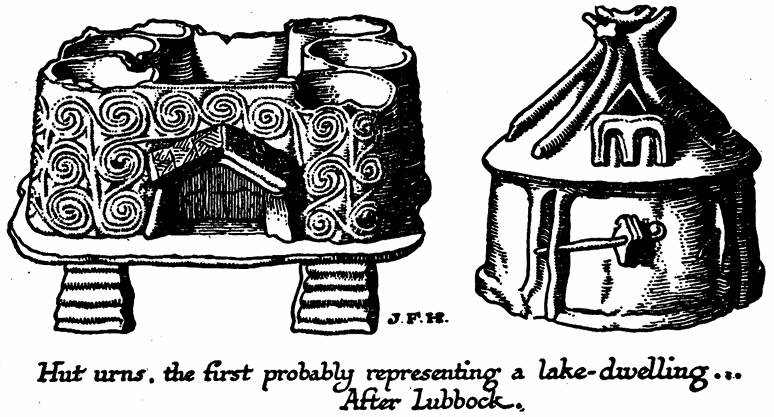 J.F.H.
Hut urns, the first probably representing a lake-dwelling...
After Lubbock.